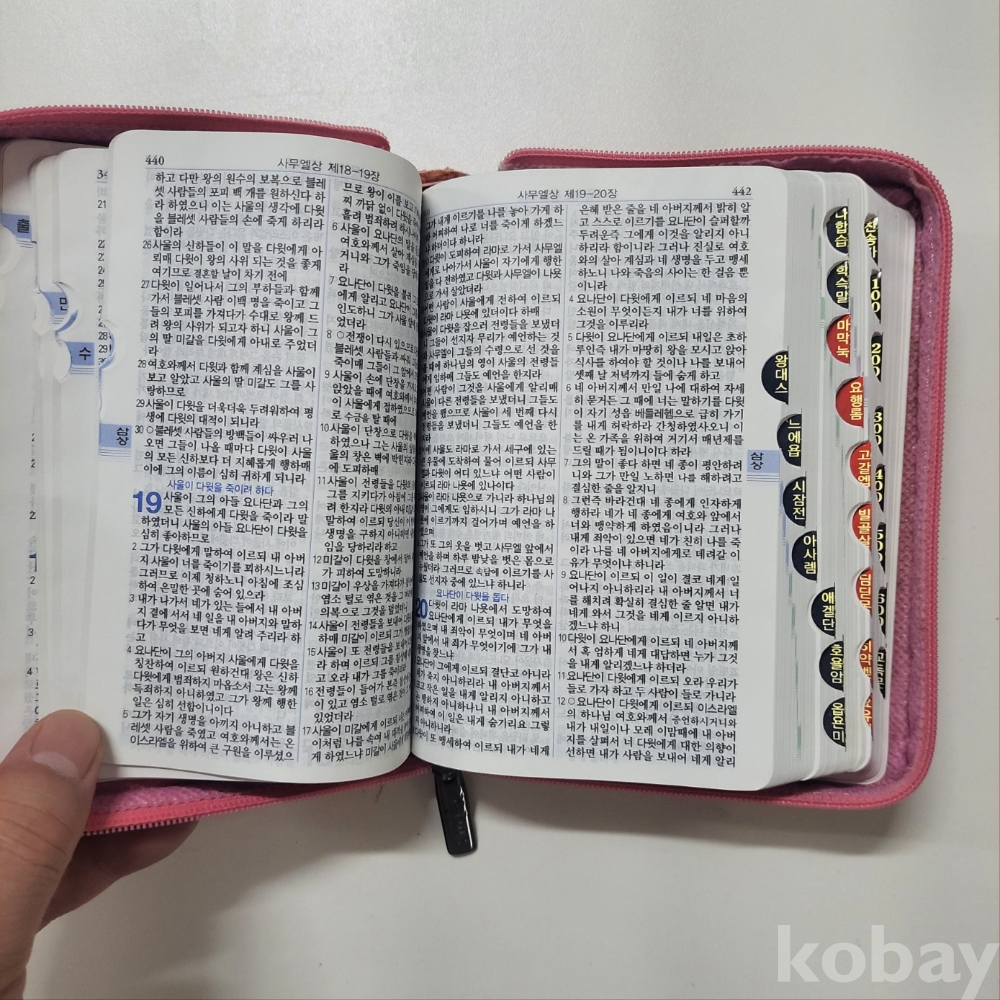 440
사무엘상 제18-19장
하고 다만 왕의 원수의 보복으로 블레
셋 사람들의 포피 백 개를 원하신다 하
라 하였으니 이는 사울의 생각에 다윗
을 블레셋 사람들의 손에 죽게 하리라
함이라
26 사울의 신하들이 이 말을 다윗에게 아
뢰매 다윗이 왕의 사위 되는 것을 좋게
여기므로 결혼할 날이 차기 전에
27 다윗이 일어나서 그의 부하들과 함께
가서 블레셋 사람 이백 명을 죽이고 그
들의 포피를 가져다가 수대로 왕께 드
려 왕의 사위가 되고자 하니 사울이 그
의 딸 미갈을 다윗에게 아내로 주었더
라
28 여호와께서 다윗과 함께 계심을 사울이
보고 알았고 사울의 딸 미갈도 그를 사
랑하므로
29 사울이 다윗을 더욱더욱 두려워하여 평
생에 다윗의 대적이 되니라
30 ○블레셋 사람들의 방백들이 싸우러 나
오면 그들이 나올 때마다 다윗이 사울
의 모든 신하보다 더 지혜롭게 행하매
이에 그의 이름이 심히 귀하게 되니라
사울이 다윗을 죽이려 하다
19 사울이 그의 아들 요나단과 그의
모든 신하에게 다윗을 죽이라 말
하였더니 사울의 아들 요나단이 다윗을
심히 좋아하므로
2 그가 다윗에게 말하여 이르되 내 아버
지 사울이 너를 죽이기를 꾀하시느니라
그러므로 이제 청하노니 아침에 조심
하여 은밀한 곳에 숨어 있으라
3 내가 나가서 네가 있는 들에서 내 아버
지 곁에 서서 네 일을 내 아버지와 말하
다가 무엇을 보면 네게 알려 주리라 하
고
4 요나단이 그의 아버지 사울에게 다윗을
칭찬하여 이르되 원하건대 왕은 신하
다윗에게 범죄하지 마옵소서 그는 왕께
득죄하지 아니하였고 그가 왕께 행한
일은 심히 선함이니이다
5 그가 자기 생명을 아끼지 아니하고 블
레셋 사람을 죽였고 여호와께서는 온
이스라엘을 위하여 큰 구원을 이루셨으
므로 왕이 이를 보고
찌 까닭 없이 다윗을
흘려 범죄하려 하시나
6 사울이 요나단의 말을
여호와께서 살아 계심
거니와 그가 죽임을
라
7 요나단이 다윗을 불러 그
에게 알리고 요나단이 그
인도하니 그가 사울
었더라
8 ○전쟁이 다시 있으므로
블레셋 사람들과 싸워 그
9 사울이 손에 단창을 가지
앉았을 때에 여호와께서
이 사울에게 접하였으므로
로 수금을 탈 때에
10 사울이 단창으로 다윗을
하였으나 그는 사울의
울의 창은 벽에 박힌지라
에 도피하매
11 사울이 전령들을 다윗의
그를 지키다가 아침에 그
려 한지라 다윗의 아내 미갈
말하여 이르되 당신이 이
생명을 구하지 아니하면
임을 당하리라 하고
12 미갈이 다윗을 창에서 달아
가 피하여 도망하니라
13 미갈이 우상을 가져다가 침상
염소 털로 엮은 것을 그
의복으로 그것을 덮었더니
14 사울이 전령들을 보내어
하매 미갈이 이르되 그가
15 사울이 또 전령들을 보내어
라 하며 이르되 그를 침상
고 오라 내가 그를 죽이리라
16 전령들이 들어가 본즉 침상에
이 있고 염소 털로 엮은 것이
있었더라
17 사울이 미갈에게 이르되 너는
이처럼 나를 속여 내 대적을
게 하였느냐 미갈이 사울에게
삼상
출
민
수
442
사무엘상 제19-20장
그가 내게 이르기를 나를 놓아 가게 하
라 하며 나로 너를 죽이게 하겠느
하더이다 하니라
다윗이 도피하여 라마로 가서 사무엘
에게로 나아가서 사울이 자기에게 행한
을 다 전하였고 다윗과 사무엘이 나욧
로 가서 살았더라
어떤 사람이 사울에게 전하여 이르되
이 라마 나욧에 있더이다 하매
울이 다윗을 잡으러 전령들을 보냈더
그들이 선지자 무리가 예언하는 것
사무엘이 그들의 수령으로 선 것을
때에 하나님의 영이 사울의 전령들
게 임하매 그들도 예언을 한지라
떤 사람이 그것을 사울에게 알리매
이 다른 전령들을 보냈더니 그들도
언을 했으므로 사울이 세 번째 다시
령들을 보냈더니 그들도 예언을 한
라
에 사울도 라마로 가서 세구에 있는
큰 우물에 도착하여 물어 이르되 사무
과 다윗이 어디 있느냐 어떤 사람이
되 라마 나욧에 있나이다
울이 라마 나욧으로 가니라 하나님의
이 그에게도 임하시니 그가 라마 나
에 이르기까지 걸어가며 예언을 하
으며
가 또 그의 옷을 벗고 사무엘 앞에서
언을 하며 하루 밤낮을 벗은 몸으로
누웠더라 그러므로 속담에 이르기를 사
도 선지자 중에 있느냐 하니라
요나단이 다윗을 돕다
20 다윗이 라마 나욧에서 도망하여
요나단에게 이르되 내가 무엇을
였으며 내 죄악이 무엇이며 네 아버
앞에서 내 죄가 무엇이기에 그가 내
명을 찾느냐
요나단이 그에게 이르되 결단코 아니라
가 죽지 아니하리라 내 아버지께서
고 작은 일을 내게 알리지 아니하고
행하지 아니하나니 내 아버지께서
하여 이 일은 내게 숨기리요 그렇
아니하니라
다윗이 또 맹세하여 이르되 내가 네게
은혜 받은 줄을 네 아버지께서 밝히 알
고 스스로 이르기를 요나단이 슬퍼할까
두려운즉 그에게 이것을 알리지 아니
하리라 함이니라 그러나 진실로 여호
와의 살아 계심과 네 생명을 두고 맹세
하노니 나와 죽음의 사이는 한 걸음 뿐
이니라
4 요나단이 다윗에게 이르되 네 마음의
소원이 무엇이든지 내가 너를 위하여
그것을 이루리라
5 다윗이 요나단에게 이르되 내일은 초하
루인즉 내가 마땅히 왕을 모시고 앉아
식사를 하여야 할 것이나 나를 보내어
셋째 날 저녁까지 들에 숨게 하고
6 네 아버지께서 만일 나에 대하여 자세
히 묻거든 그 때에 너는 말하기를 다윗
이 자기 성읍 베들레헴으로 급히 가기
를 내게 허락하라 간청하였사오니 이
는 온 가족을 위하여 거기서 매년제를
드릴 때가 됨이니이다 하라
7 그의 말이 좋다 하면 네 종이 평안하려
니와 그가 만일 노하면 나를 해하려고
결심한 줄을 알지니
8 그런즉 바라건대 네 종에게 인자하게
행하라 네가 네 종에게 여호와 앞에서
너와 맹약하게 하였음이니라 그러나
내게 죄악이 있으면 네가 친히 나를 죽
이라 나를 네 아버지에게로 데려갈 이
유가 무엇이냐 하니라
9 요나단이 이르되 이 일이 결코 네게 일
어나지 아니하리라 내 아버지께서 너
를 해치려 확실히 결심한 줄 알면 내가
네게 와서 그것을 네게 이르지 아니하
겠느냐 하니
10 다윗이 요나단에게 이르되 네 아버지께
서 혹 엄하게 네게 대답하면 누가 그것
을 내게 알리겠느냐 하더라
11 요나단이 다윗에게 이르되 오라 우리가
들로 가자 하고 두 사람이 들로 가니라
12 ○요나단이 다윗에게 이르되 이스라엘
의 하나님 여호와께서 증언하시거니와
내가 내일이나 모레 이맘때에 내 아버
지를 살펴서 너 다윗에게 대한 의향이
선하면 내가 사람을 보내어 네게 알리
삼상
왕대스
느에욥
시잠전
아사렘
애겔단
호욜암
옵욘미
나합습
학슥말
마막눅
요행롬
고갈엡
빌골살
딤딛몬
히약벧
찬송가
100
200
300
400
500
600
교독문
kobay